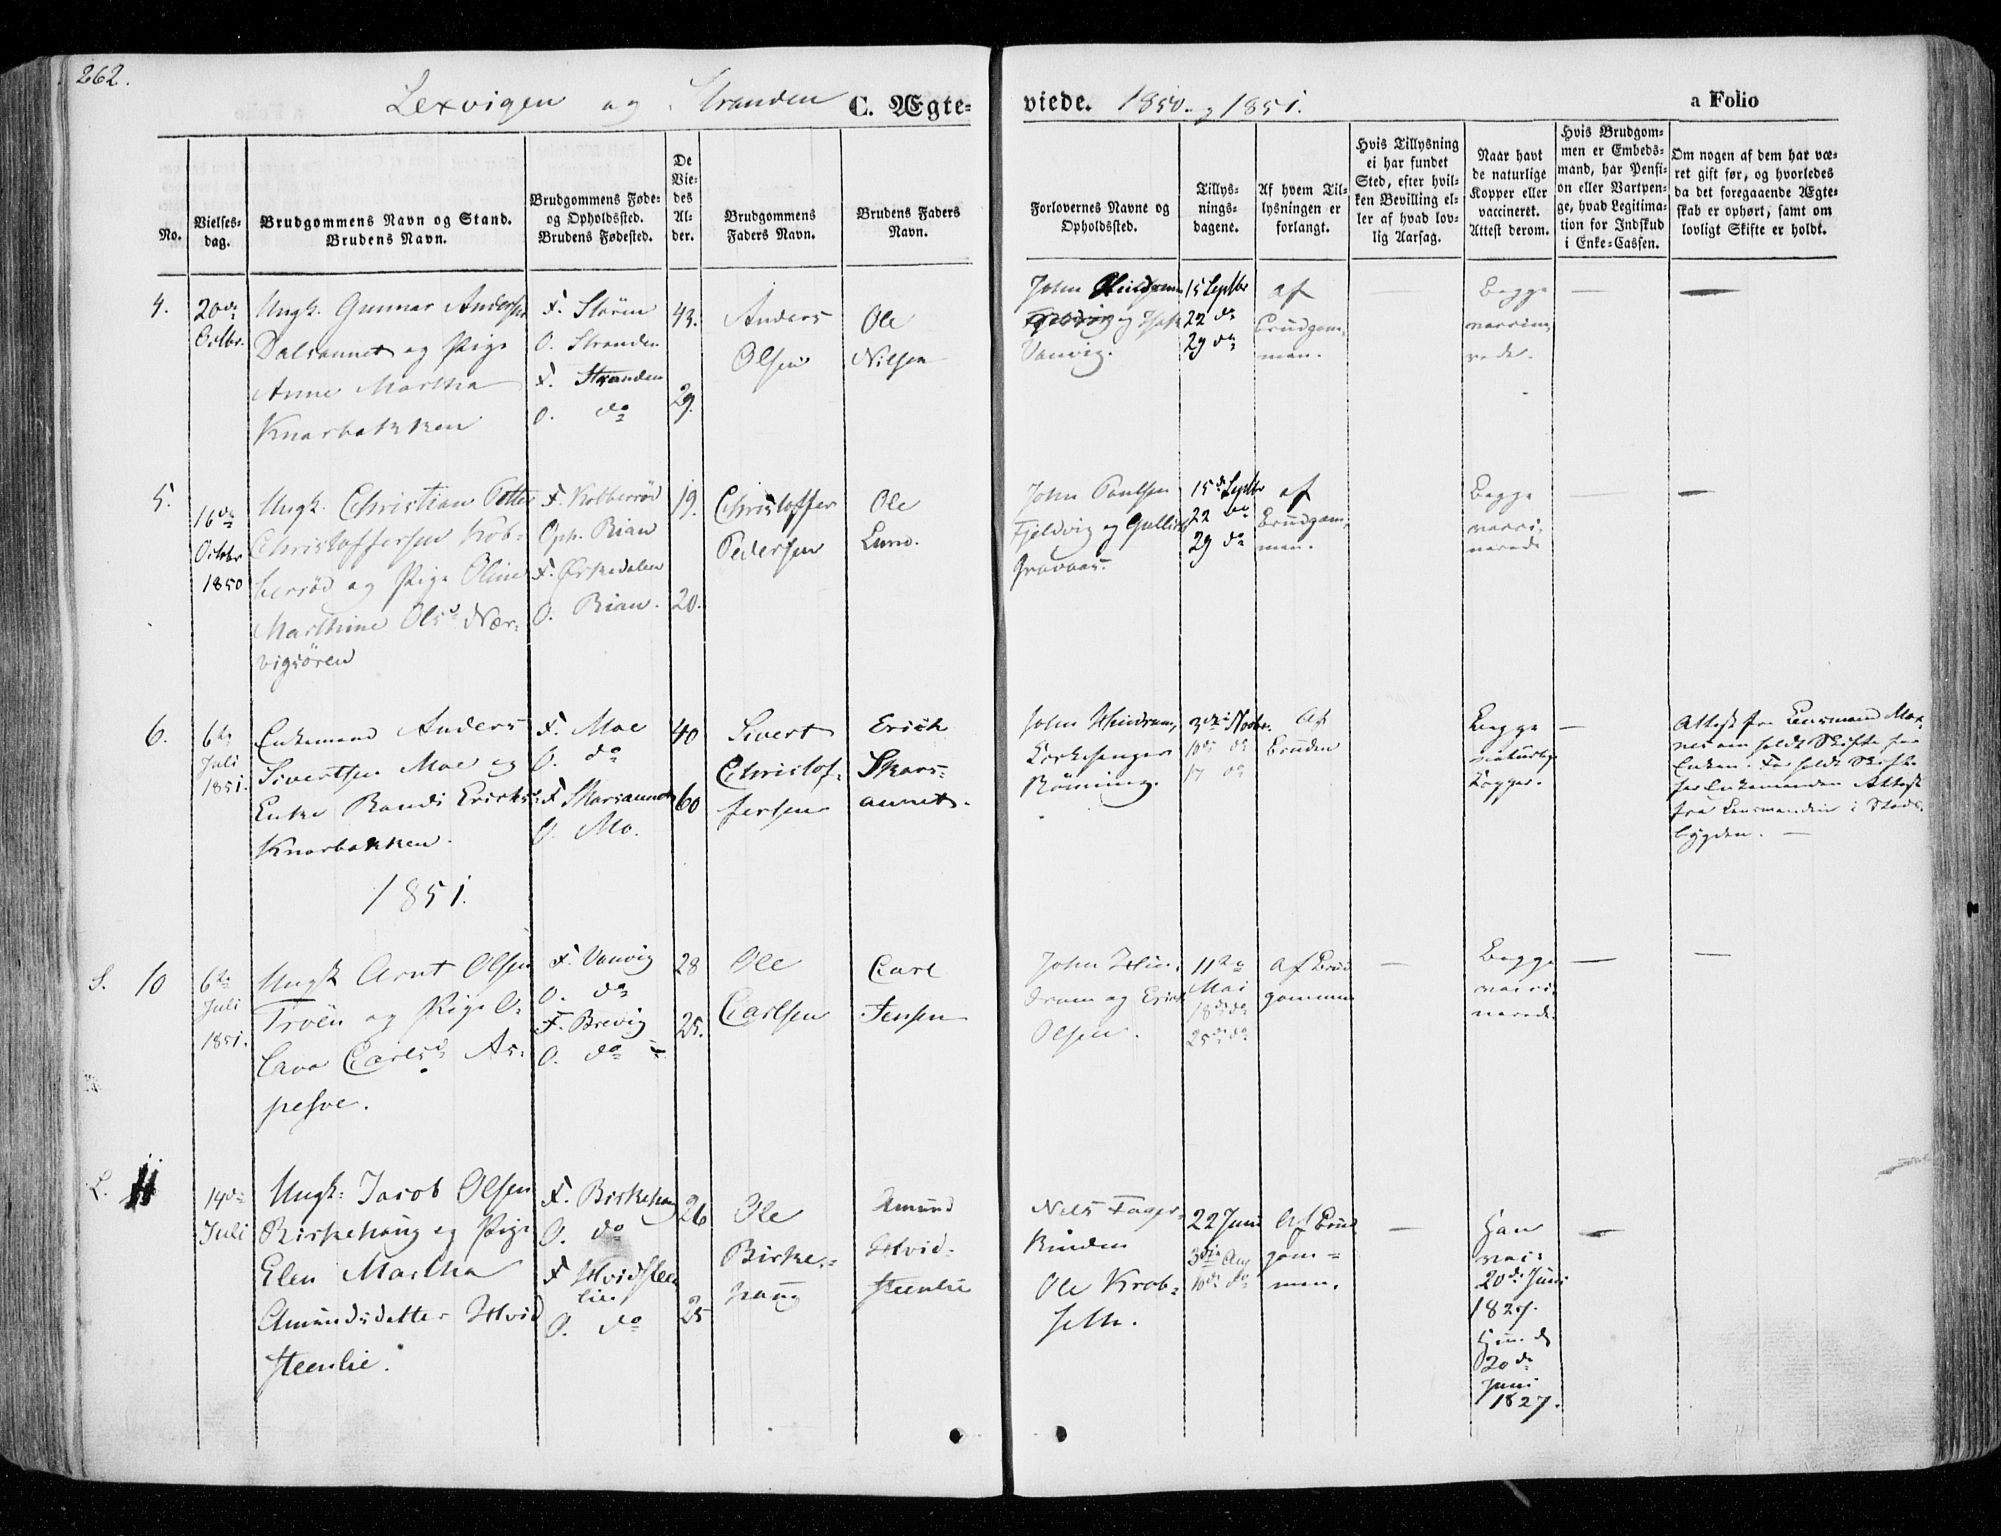 262.
Lexvigen og Stranden C. Ægte- viede. 1850. og 1851. a Folio
No.
Vielses-
dag.
Brudgommens Navn og Stand.
Brudens Navn.
Brudgommens Føde-
og Opholdssted.
Brudens Fødested.
De
Vie-
des
Al-
der.
Brudgommens
Faders Navn.
Brudens Faders
Navn.
Forlovernes Navne og
Opholdssted.
Tillys-
nings-
dagene.
Af hvem Til-
lysningen er
forlangt.
Hvis Tillysning
ei har fundet
Sted, efter hvil-
ken Bevilling el-
ler af hvad lov-
lig Aarsag.
Naar havt
de naturlige
Kopper eller
vaccineret.
Attest derom.
Hvis Brudgom-
men er Embeds-
mand, har Pensi-
on eller Vartpen-
ge, hvad Legitima-
tion for Indskud
i Enke-Cassen.
Om nogen af dem har væ-
ret gift før, og hvorledes
da det foregaaende Ægte-
skab er ophørt, samt om
lovligt Skifte er holdt.
4.
20de
Octbr.
Ungk. Gunnar Andersen
Dalsaunet og Pige
Anne Martha
Knarbakken
F. Stören
O. Stranden
F. Stranden
O. do
43.
29.
Anders
Olsen
Ole
Nilsen
John Hindrum
og
Vanvig.
15 Septbr
22 do
29 do
af
Brudgom-
men.
Begge
vaccine-
rede.
5.
16de
Octobr
1850
Ungk. Christian Petter
Christoffersen Kob-
berrød og Pige Oline
Marthine Olsd. Nær-
vigsören
F. Kobberrød
Oph. Rian
F. Ørkedalen
O. Rian.
19.
20.
Christoffer
Pedersen
Ole
Lund.
John Paulsen
Fjeldvig og
15de Septbr
22 do
29 do
af
Brudgom-
men.
Begge
vacci-
nerede
6.
6te
Juli
1851.
Enkemand Anders
Sivertsen Moe og
Enke Randi Ericksd.
Knarbakken.
F. Moe
O. do
F.
O. Mo.
40
60
Sivert
Christof-
fersen
Erick
Skars-
aunet.
John Hindrum,
Kirkesanger
Rönning.
3die Novbr.
10de do
17 do
Af
Bruden
Begge
naturlige
Kopper.
Attest fra Lensmand
om holdt Skifte for
Enken. For holdt Skifte
for Enkemanden Attest
fra Lensmanden i Stads-
bygden.
1851.
S. 10
6te
Juli
1851.
Ungk Arnt Olsen
Troën og Pige O-
lava Carlsd. As-
pesve.
F. Vanvig
O. do
F. Brevig
O. do
28
25.
Ole
Carlsen
Carl
Jensen
John Hin-
drum og Erick
Olsen.
11te
Mai
18de do
25de do
af Brud
gommen
Begge
vacci-
nerede.
L. 11
14de
Juli
Ungk: Jacob Olsen
Birkehaug og Pige
Elen Martha
Amundsdatter Hvid
steenlie.
F. Birkehaug
O. do
F Hvidsteen
lie.
O. do
26
25
Ole
Birke-
haug
Amund
Hvid-
steenlie
Nels Fager-
Ole Krob-
seth.
22 Juni
3die Aug
10de do
Af Brud
gom-
men.
Han
vacc
20de Juni
1827.
20de
Juni
1827.